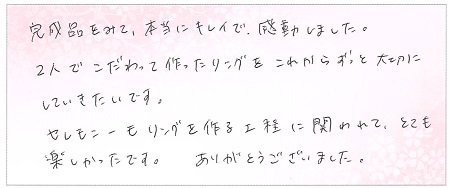 完成品をみて、本当にキレイで、感動しました。
2人でこだわって作ったリングをこれからずっと大切に
していきたいです。
セレモニーもリングを作る工程に関われて、とても
楽しかったです。 ありがとうございました。